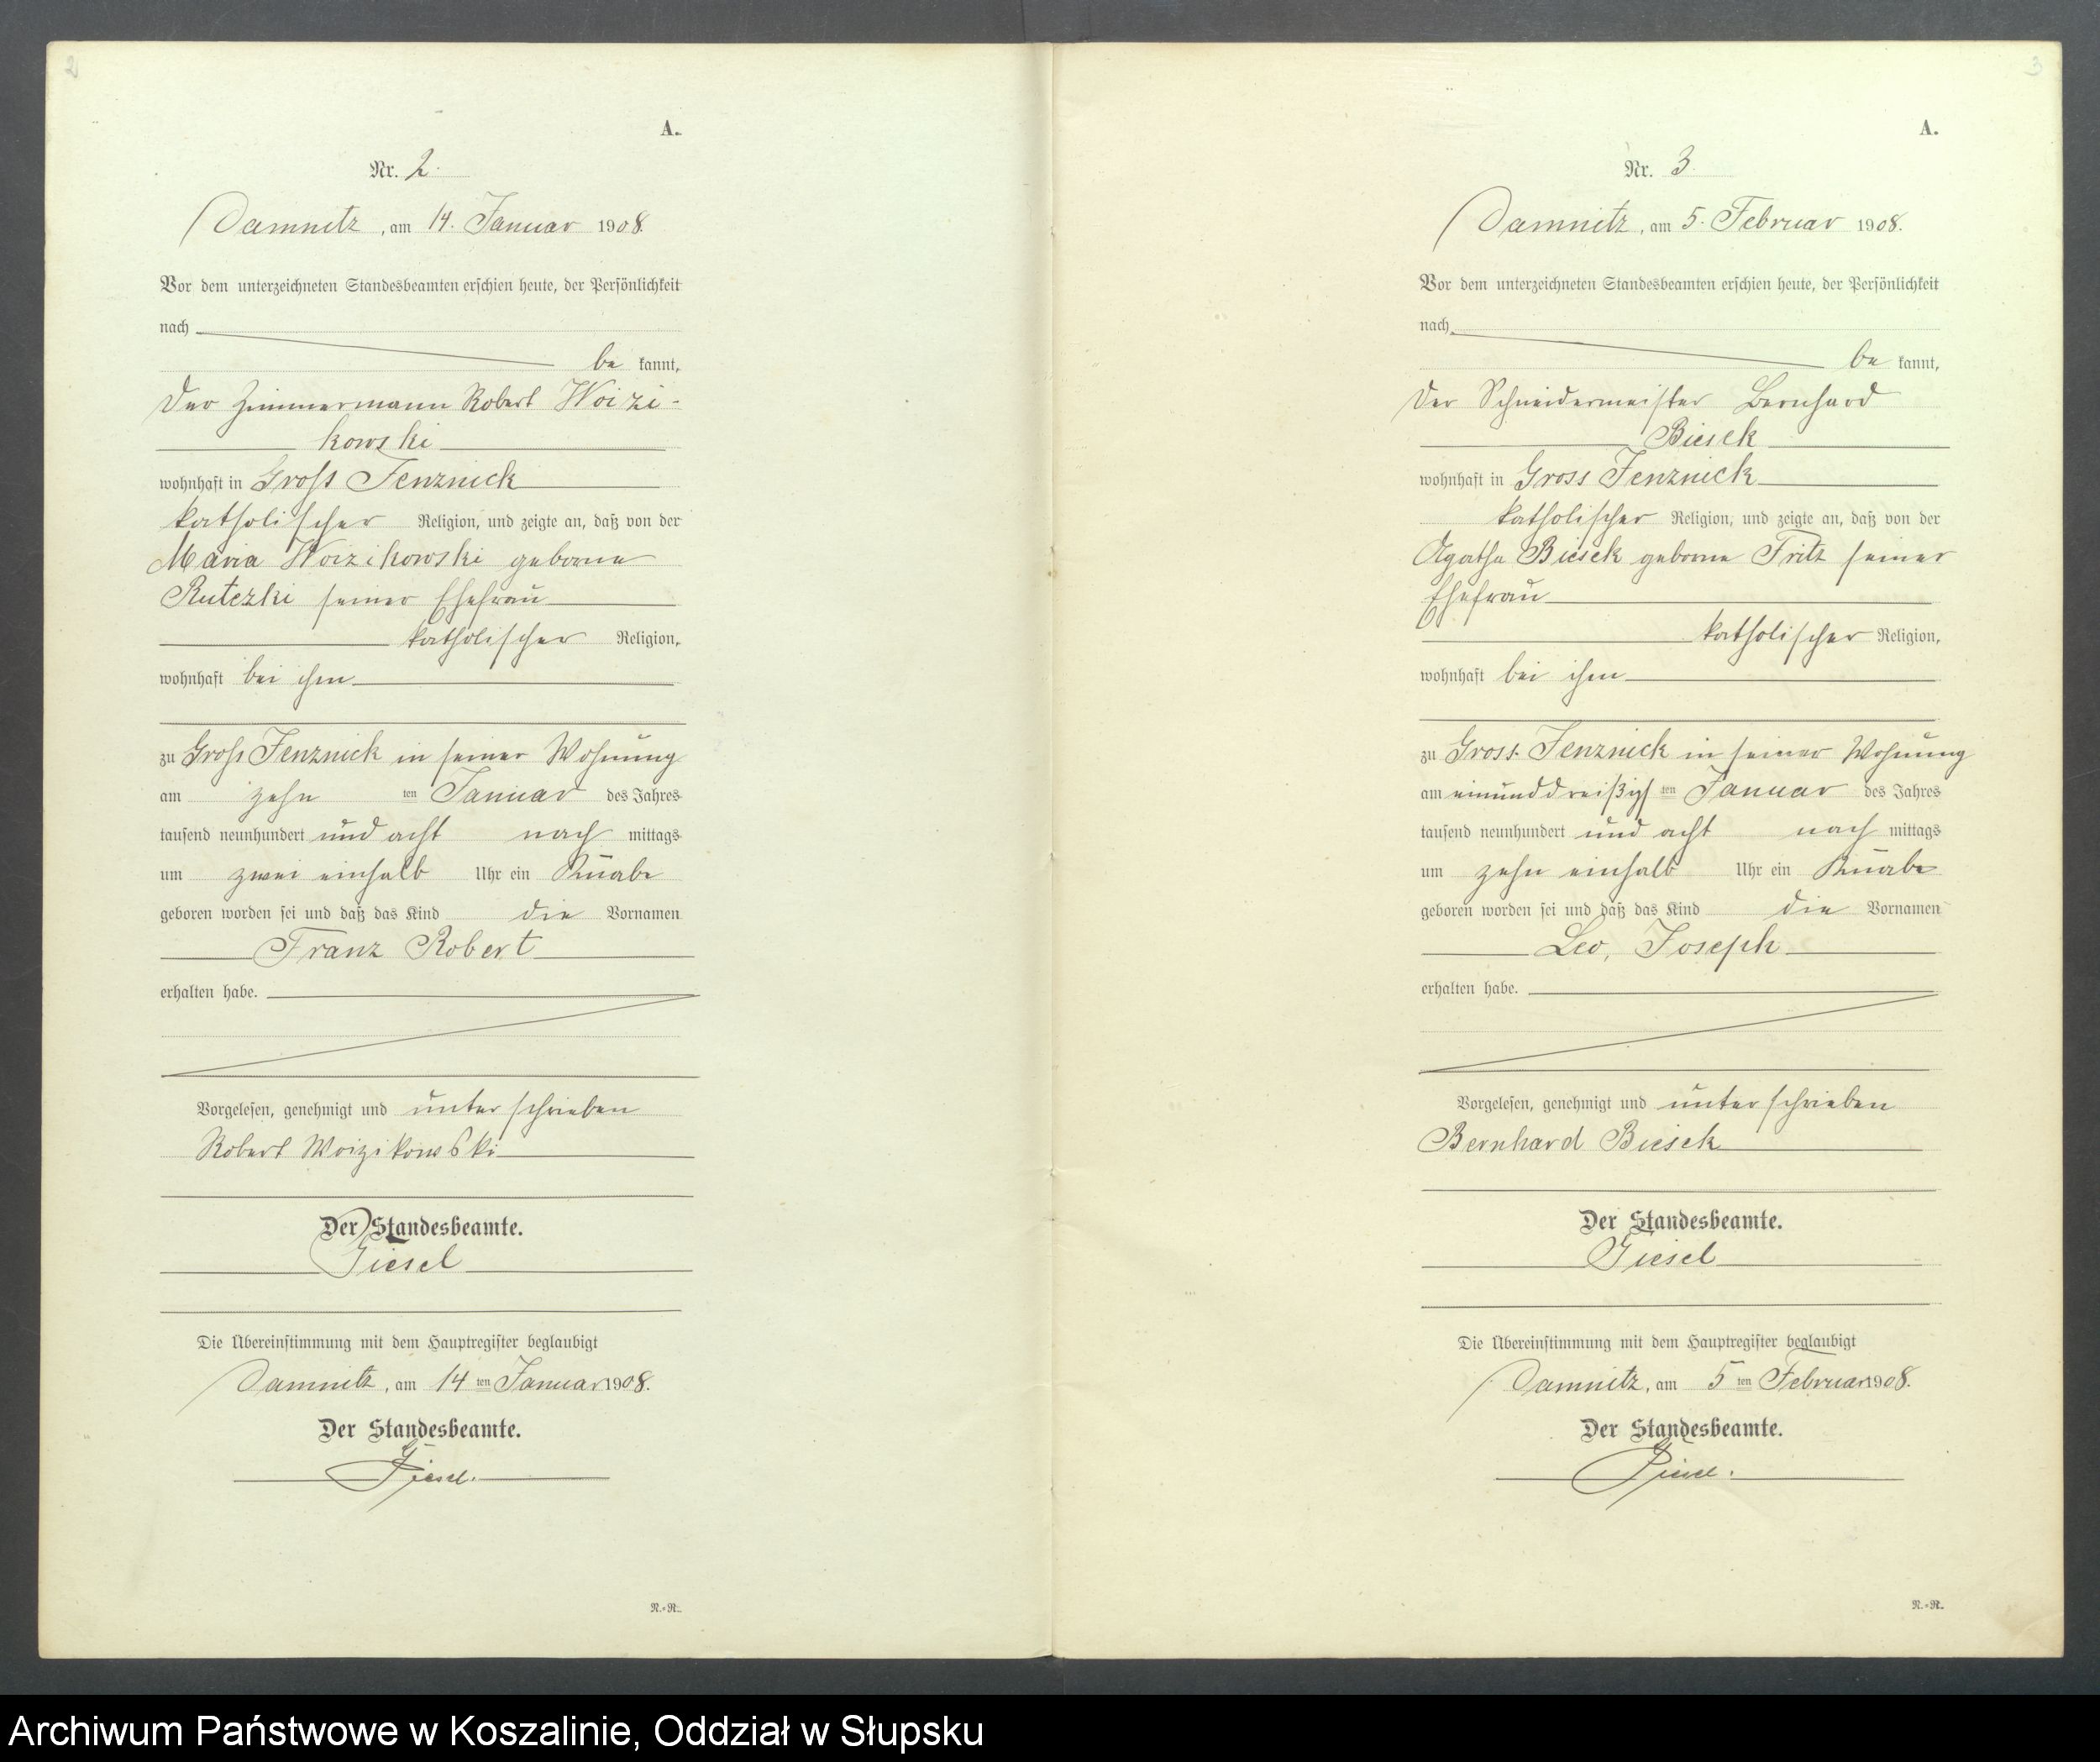 2
A.
Nr. 2.
Damnitz, am 14. Januar 1908.
Vor dem unterzeichneten Standesbeamten erschien heute, der Persönlichkeit
nach
be kannt,
der Zimmermann Robert Woizi-
kowski
wohnhaft in Groß Jenznick
katholischer Religion, und zeigte an, daß von der
Maria Woizikowski geborne
Rutezki seiner Ehefrau
katholischer Religion,
wohnhaft bei ihm
zu Groß Jenznick in seiner Wohnung
am zehn ten Januar des Jahres
tausend neunhundert und acht nach mittags
um zwei einhalb Uhr ein Knabe
geboren worden sei und daß das Kind die Vornamen
Franz Robert
erhalten habe.
Vorgelesen, genehmigt und unterschrieben
Robert Woizikowski
Der Standesbeamte.
Giesel
Die Übereinstimmung mit dem Hauptregister beglaubigt
Damnitz, am 14 ten Januar 1908.
Der Standesbeamte.
Giesel.
N.-R.
3
A.
Nr. 3.
Damnitz, am 5. Februar 1908.
Vor dem unterzeichneten Standesbeamten erschien heute, der Persönlichkeit
nach
be kannt,
der Schneidermeister Bernhard
Biesek
wohnhaft in Gross Jenznick
katholischer Religion, und zeigte an, daß von der
Agatha Biesek geborne Fritz seiner
Ehefrau
katholischer Religion,
wohnhaft bei ihm
zu Gross Jenznick in seiner Wohnung
am einunddreißigs ten Januar des Jahres
tausend neunhundert und acht nach mittags
um zehn einhalb Uhr ein Knabe
geboren worden sei und daß das Kind die Vornamen
Leo, Joseph
erhalten habe.
Vorgelesen, genehmigt und unterschrieben
Bernhard Biesek
Der Standesbeamte.
Giesel
Die Übereinstimmung mit dem Hauptregister beglaubigt
Damnitz, am 5 ten Februar 1908.
Der Standesbeamte.
Giesel.
N.-R.
Archiwum Państwowe w Koszalinie, Oddział w Słupsku